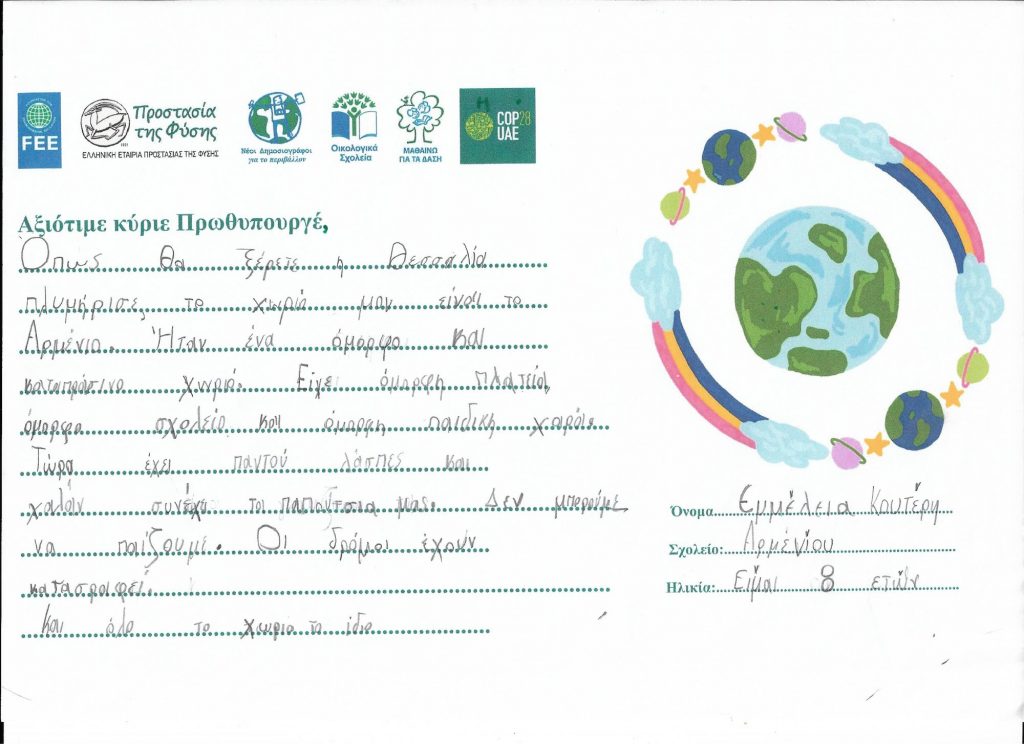 FEE
Προστασία
της Φύσης
ΕΛΛΗΝΙΚΗ ΕΤΑΙΡΙΑ ΠΡΟΣΤΑΣΙΑΣ ΤΗΣ ΦΥΣΗΣ
Νέοι Δημοσιογράφοι
για το περιβάλλον
Οικολογικά
Σχολεία
ΜΑΘΑΙΝΩ
ΓΙΑ ΤΑ ΔΑΣΗ
COP28
UAE
Αξιότιμε κύριε Πρωθυπουργέ,
Όπως θα ξέρετε η Θεσσαλία
πλυμήρισε, το χωριό μου είναι το
Αρμένιο. Ήταν ένα όμορφο και
καταπράσινο χωριό. Είχε όμορφη πλατεία,
όμορφο σχολείο και όμορφη παιδική χαρά.
Τώρα έχει παντού λάσπες και
χαλάν συνέχι τα παπούτσια μας. Δεν μπορούμε
να παίζουμε. Οι δρόμοι έχουν
καταστραφεί.
Και όλο το χωριό το ίδιο
Όνομα Εμμέλεια Κουτέρη
Σχολείο: Αρμένιου
Ηλικία: Είμαι 8 ετών